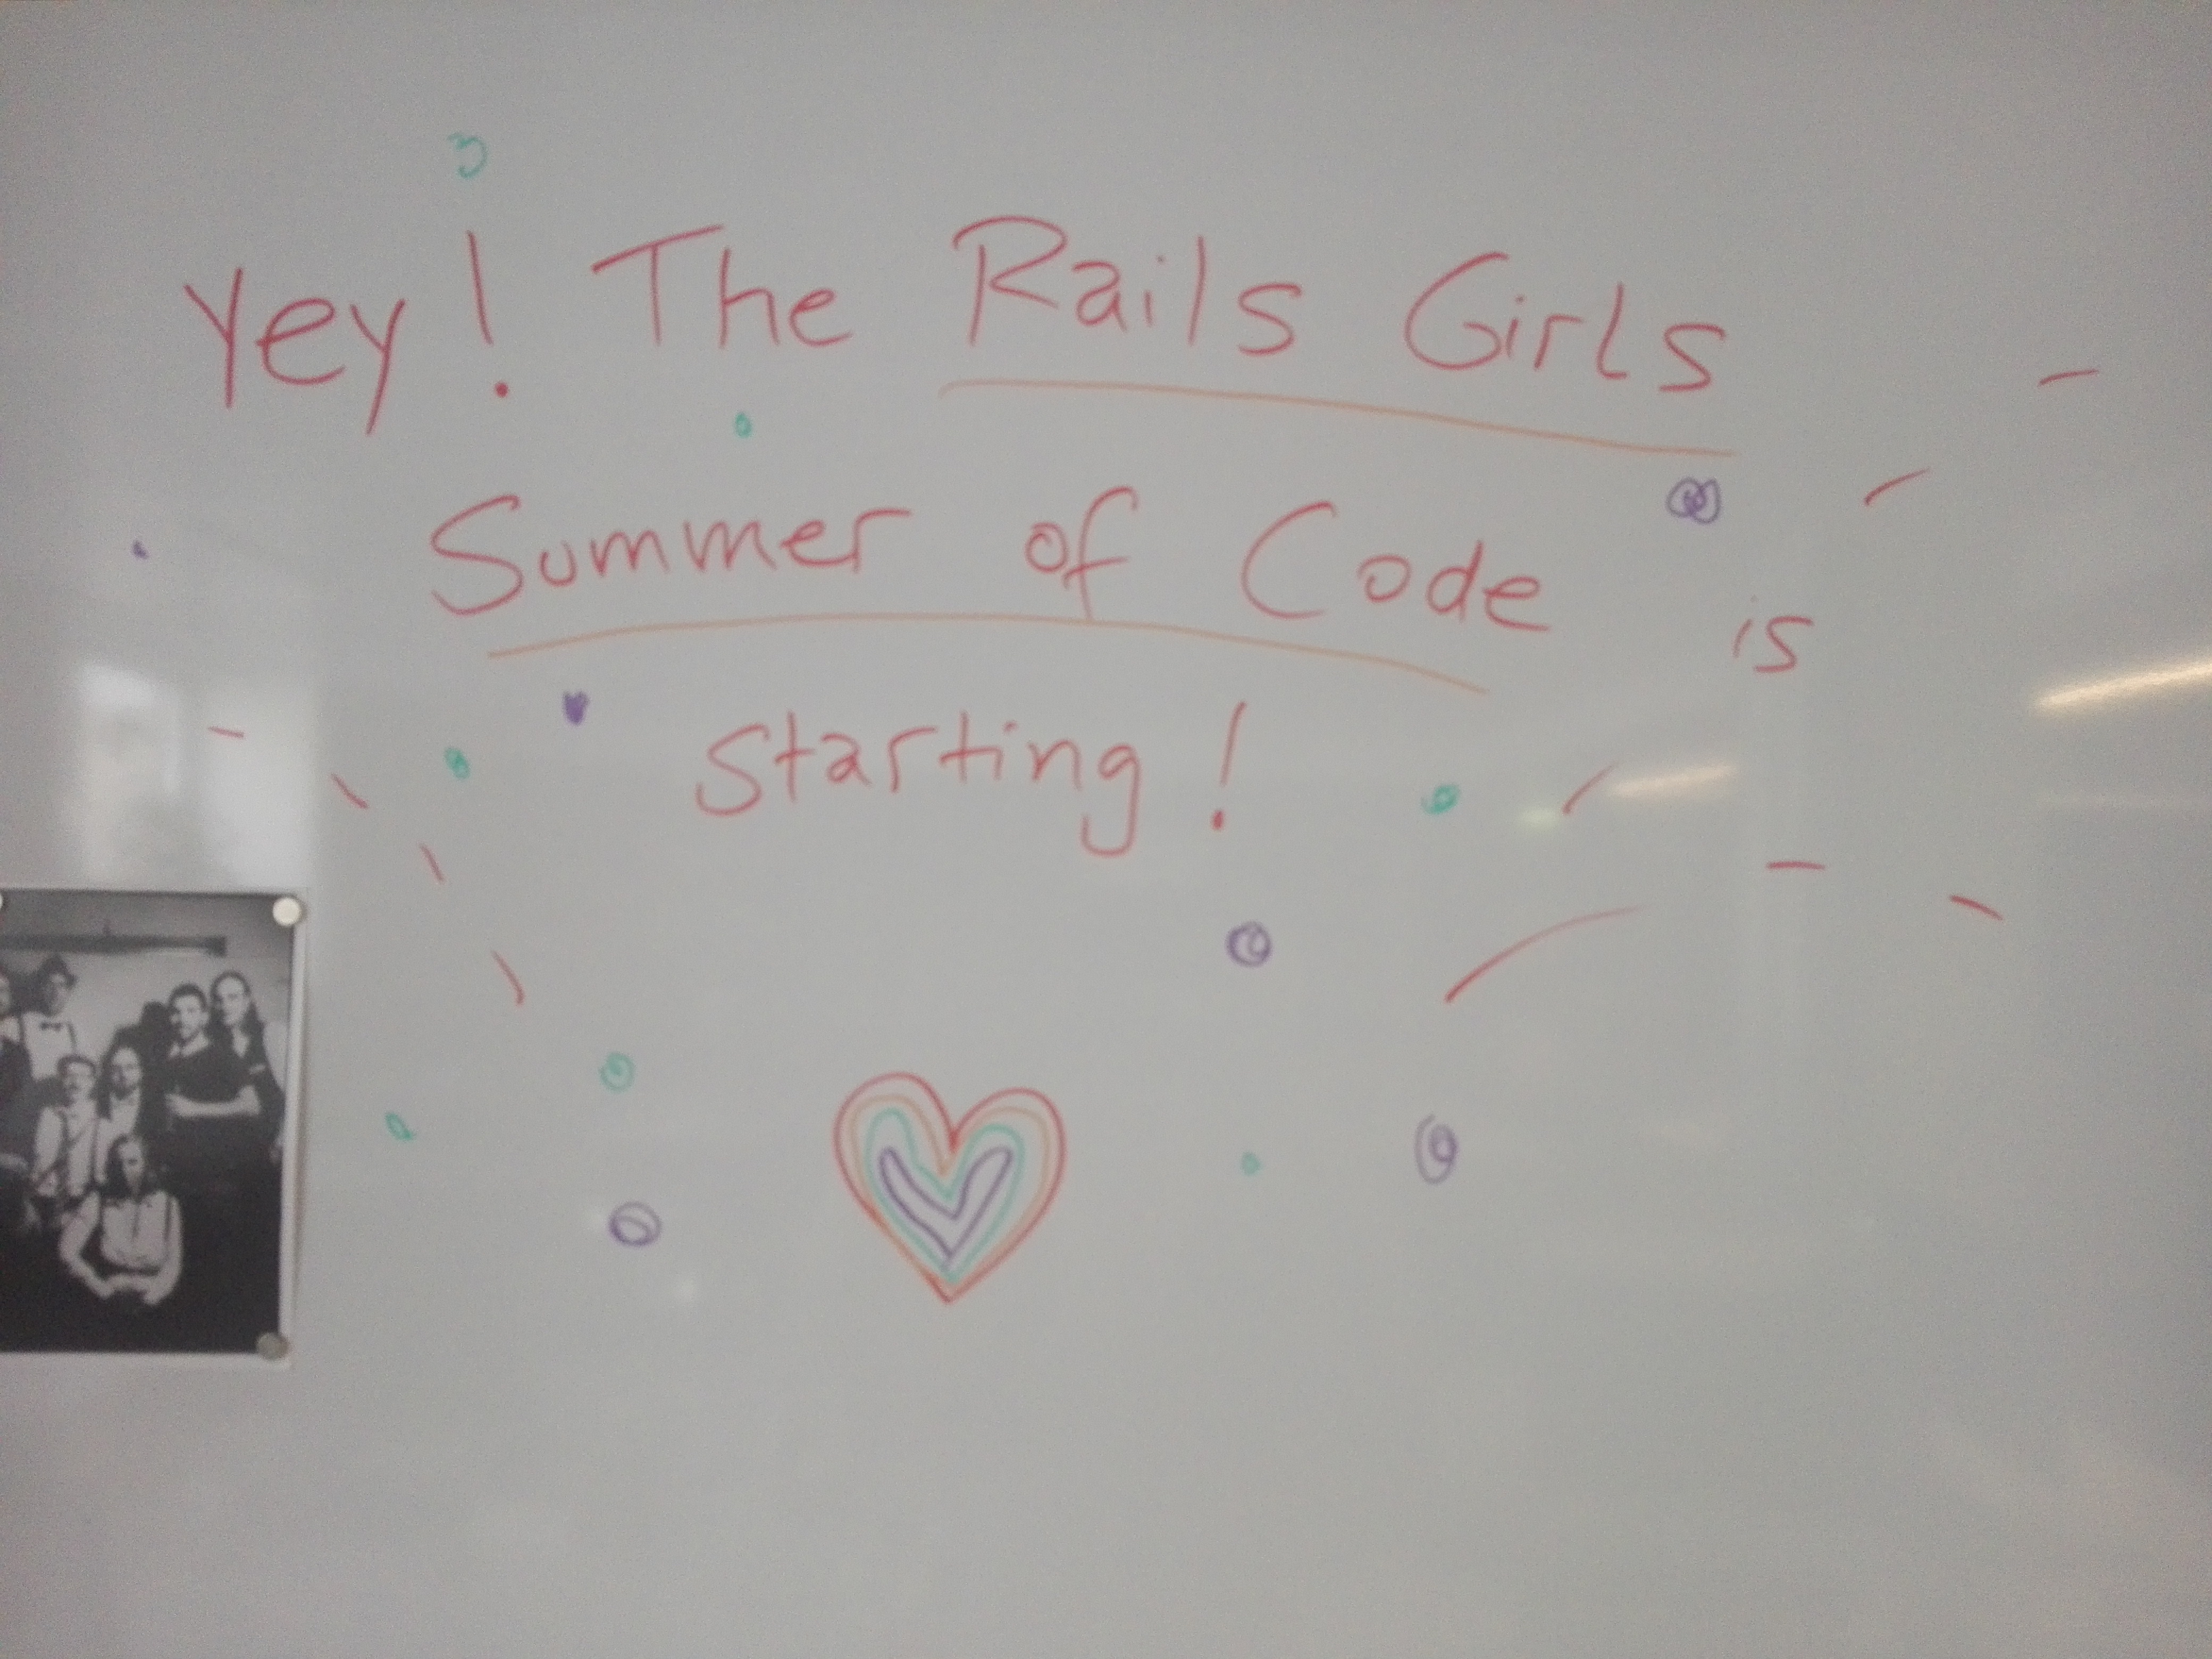 Yey! The Rails Girls
Summer of Code is
Starting!